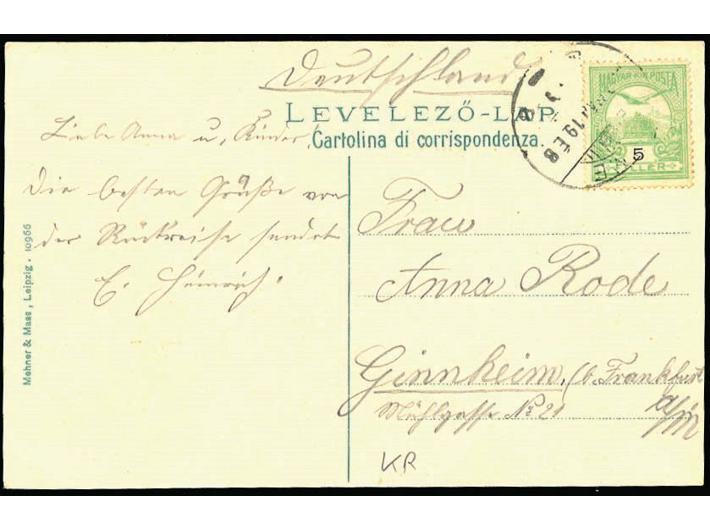 Deutschland
LEVELEZŐ-LAP
Cartolina di corrispondenza.
MAGYAR KIR. POSTA
5
Liebe Anna u, Kinder,
Die besten Grüße von
der Rückreise sendet
E. Heinrich.
Frau
Anna Rode
Ginnheim, (b. Frankfurt
a/M
Mühlgasse No 21
KR
Mehner & Maas, Leipzig. 10966